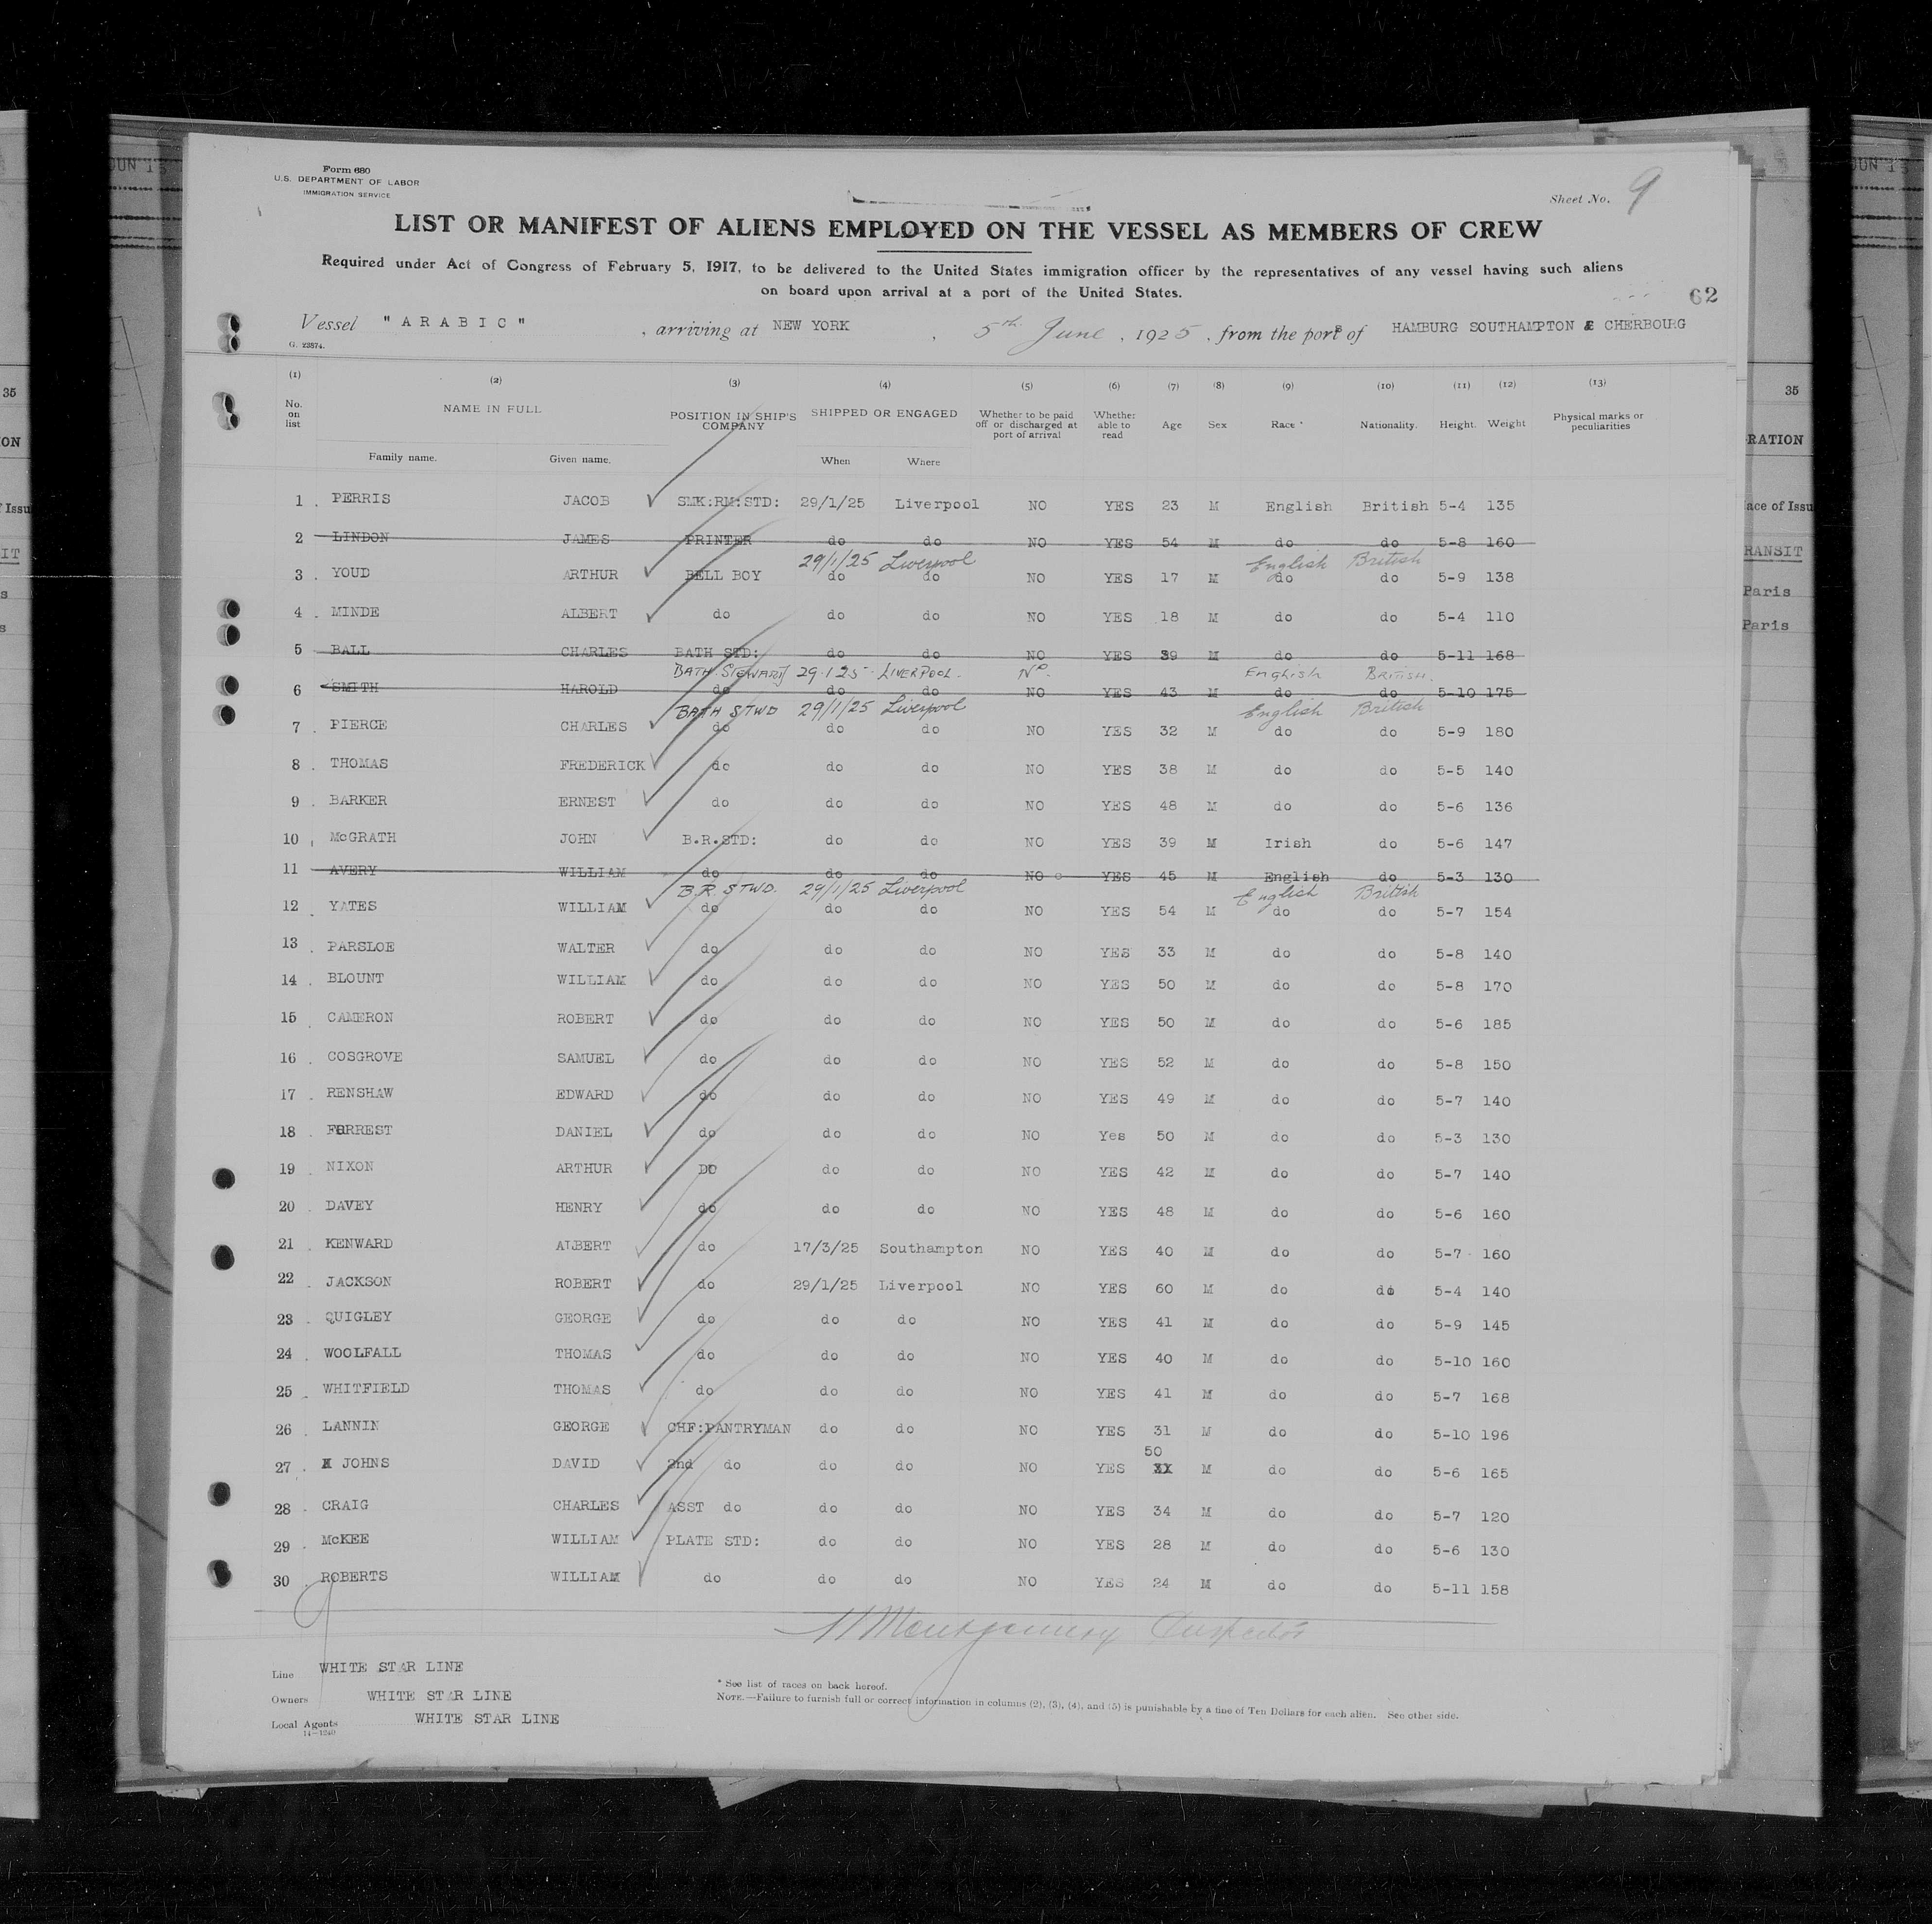 Form 680
U.S. DEPARTMENT OF LABOR
IMMIGRATION SERVICE
Sheet No. 9
LIST OR MANIFEST OF ALIENS EMPLOYED ON THE VESSEL AS MEMBERS OF CREW
Required under Act of Congress of February 5, 1917, to be delivered to the United States immigration officer by the representatives of any vessel having such aliens
on board upon arrival at a port of the United States.
62
Vessel "ARABIC", arriving at NEW YORK, 5th June, 1925, from the ports of HAMBURG SOUTHAMPTON & CHERBOURG
G. 23874.
(1) (2) (3) (4) (5) (6) (7) (8) (9) (10) (11) (12) (13)
No. on list NAME IN FULL POSITION IN SHIP'S COMPANY SHIPPED OR ENGAGED Whether to be paid off or discharged at port of arrival Whether able to read Age Sex Race * Nationality. Height. Weight Physical marks or peculiarities
Family name. Given name. When Where
1 PERRIS JACOB SMK:RM:STD: 29/1/25 Liverpool NO YES 23 M English British 5-4 135
2 LINDON JAMES PRINTER do do NO YES 54 M do do 5-8 160
29/1/25 Liverpool English British
3 YOUD ARTHUR BELL BOY do do NO YES 17 M do do 5-9 138
4 MINDE ALBERT do do do NO YES 18 M do do 5-4 110
5 BALL CHARLES BATH STD: do do NO YES 39 M do do 5-11 168
BATH STEWARD 29.1.25 LIVERPOOL. No. English BRITISH.
6 SMITH HAROLD do do do NO YES 43 M do do 5-10 175
BATH STWD 29/1/25 Liverpool English British
7 PIERCE CHARLES do do do NO YES 32 M do do 5-9 180
8 THOMAS FREDERICK do do do NO YES 38 M do do 5-5 140
9 BARKER ERNEST do do do NO YES 48 M do do 5-6 136
10 McGRATH JOHN B.R.STD: do do NO YES 39 M Irish do 5-6 147
11 AVERY WILLIAM do do do NO YES 45 M English do 5-3 130
B.R. STWD. 29/1/25 Liverpool English British
12 YATES WILLIAM do do do NO YES 54 M do do 5-7 154
13 PARSLOE WALTER do do do NO YES 33 M do do 5-8 140
14 BLOUNT WILLIAM do do do NO YES 50 M do do 5-8 170
15 CAMERON ROBERT do do do NO YES 50 M do do 5-6 185
16 COSGROVE SAMUEL do do do NO YES 52 M do do 5-8 150
17 RENSHAW EDWARD do do do NO YES 49 M do do 5-7 140
18 FORREST DANIEL do do do NO Yes 50 M do do 5-3 130
19 NIXON ARTHUR DO do do NO YES 42 M do do 5-7 140
20 DAVEY HENRY do do do NO YES 48 M do do 5-6 160
21 KENWARD ALBERT do 17/3/25 Southampton NO YES 40 M do do 5-7 160
22 JACKSON ROBERT do 29/1/25 Liverpool NO YES 60 M do do 5-4 140
23 QUIGLEY GEORGE do do do NO YES 41 M do do 5-9 145
24 WOOLFALL THOMAS do do do NO YES 40 M do do 5-10 160
25 WHITFIELD THOMAS do do do NO YES 41 M do do 5-7 168
26 LANNIN GEORGE CHF:PANTRYMAN do do NO YES 31 M do do 5-10 196
27 JOHNS DAVID 2nd do do do NO YES 50 M do do 5-6 165
28 CRAIG CHARLES ASST do do do NO YES 34 M do do 5-7 120
29 McKEE WILLIAM PLATE STD: do do NO YES 28 M do do 5-6 130
30 ROBERTS WILLIAM do do do NO YES 24 M do do 5-11 158
Montgomery Inspector
Line WHITE STAR LINE
Owners WHITE STAR LINE
Local Agents WHITE STAR LINE
14-1240
* See list of races on back hereof.
NOTE.—Failure to furnish full or correct information in columns (2), (3), (4), and (5) is punishable by a fine of Ten Dollars for each alien. See other side.
JUN 15
35
ON
f Issu
IT
s
s
JUN 15
35
RATION
ace of Issu
RANSIT
Paris
Paris